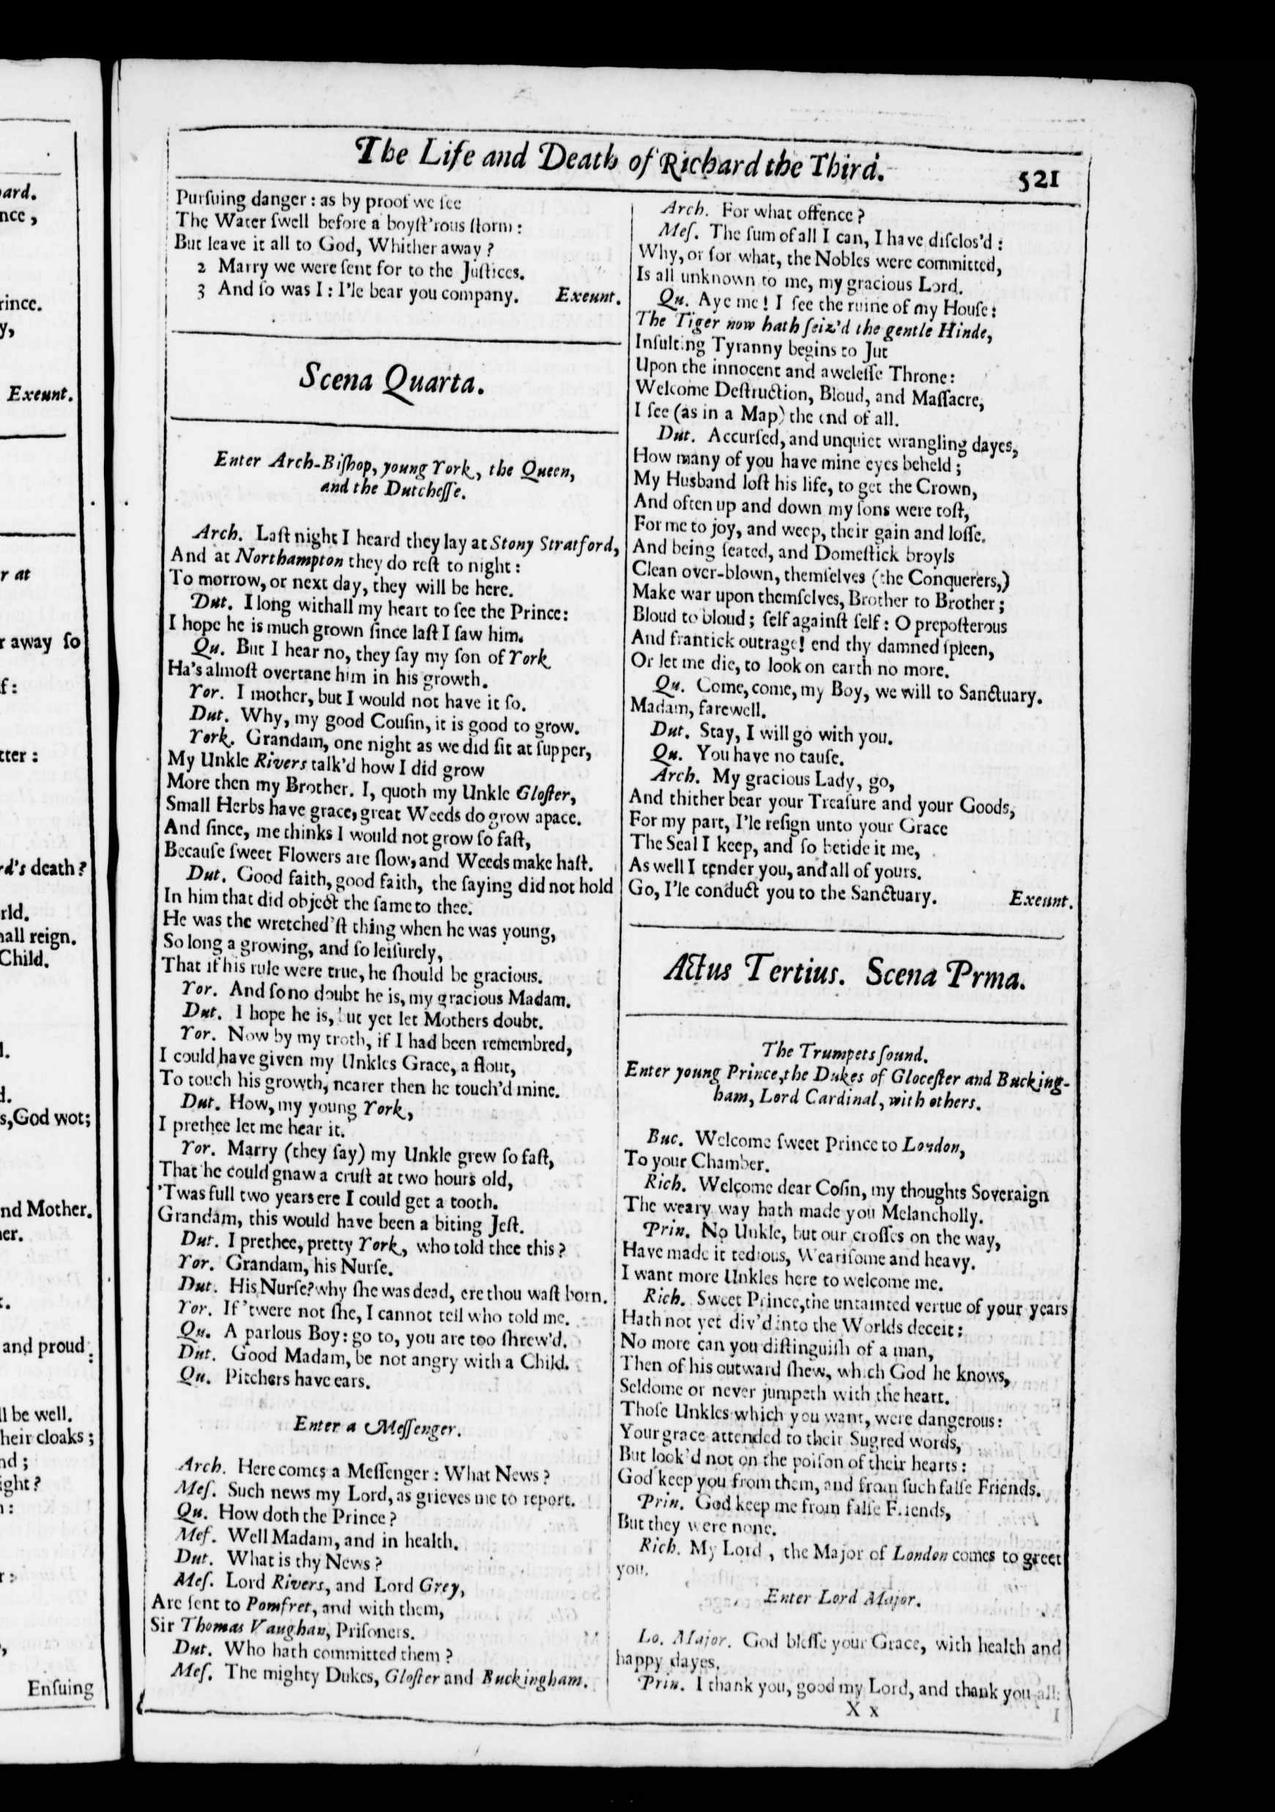 ard.
nce,
rince.
y,
Exeunt.
r at
r away ſo
f:
tter:
rd's death?
rld.
hall reign.
Child.
d.
s, God wot;
nd Mother.
er.
and proud
ll be well.
heir cloaks;
nd;
ight?
n:
Enſuing
The Life and Death of Richard the Third. 521
Purſuing danger: as by proof we ſee
The Water ſwell before a boyſt'rous ſtorm:
But leave it all to God, Whither away?
2 Marry we were ſent for to the Juſtices.
3 And ſo was I: I'le bear you company. Exeunt.
Scena Quarta.
Enter Arch-Biſhop, young York, the Queen,
and the Dutcheſſe.
Arch. Laſt night I heard they lay at Stony Stratford,
And at Northampton they do reſt to night:
To morrow, or next day, they will be here.
Dut. I long withall my heart to ſee the Prince:
I hope he is much grown ſince laſt I ſaw him.
Qu. But I hear no, they ſay my ſon of York
Ha's almoſt overtane him in his growth.
Yor. I mother, but I would not have it ſo.
Dut. Why, my good Couſin, it is good to grow.
York. Grandam, one night as we did ſit at ſupper,
My Unkle Rivers talk'd how I did grow
More then my Brother. I, quoth my Unkle Gloſter,
Small Herbs have grace, great Weeds do grow apace.
And ſince, me thinks I would not grow ſo faſt,
Becauſe ſweet Flowers are ſlow, and Weeds make haſt.
Dut. Good faith, good faith, the ſaying did not hold
In him that did object the ſame to thee.
He was the wretched'ſt thing when he was young,
So long a growing, and ſo leiſurely,
That if his rule were true, he ſhould be gracious.
Yor. And ſo no doubt he is, my gracious Madam.
Dut. I hope he is, but yet let Mothers doubt.
Yor. Now by my troth, if I had been remembred,
I could have given my Unkles Grace, a flout,
To touch his growth, nearer then he touch'd mine.
Dut. How, my young York,
I prethee let me hear it.
Yor. Marry (they ſay) my Unkle grew ſo faſt,
That he could gnaw a cruſt at two hours old,
'Twas full two years ere I could get a tooth.
Grandam, this would have been a biting Jeſt.
Dut. I prethee, pretty York, who told thee this?
Yor. Grandam, his Nurſe.
Dut. His Nurſe? why ſhe was dead, ere thou waſt born.
Yor. If 'twere not ſhe, I cannot tell who told me.
Qu. A parlous Boy: go to, you are too ſhrew'd.
Dut. Good Madam, be not angry with a Child.
Qu. Pitchers have ears.
Enter a Meſſenger.
Arch. Here comes a Meſſenger: What News?
Meſ. Such news my Lord, as grieves me to report.
Qu. How doth the Prince?
Meſ. Well Madam, and in health.
Dut. What is thy News?
Meſ. Lord Rivers, and Lord Grey,
Are ſent to Pomfret, and with them,
Sir Thomas Vaughan, Priſoners.
Dut. Who hath committed them?
Meſ. The mighty Dukes, Gloſter and Buckingham.
Arch. For what offence?
Meſ. The ſum of all I can, I have diſclos'd:
Why, or for what, the Nobles were committed,
Is all unknown to me, my gracious Lord.
Qu. Aye me! I ſee the ruine of my Houſe:
The Tiger now hath ſeiz'd the gentle Hinde,
Inſulting Tyranny begins to Jut
Upon the innocent and aweleſſe Throne:
Welcome Deſtruction, Bloud, and Maſſacre,
I ſee (as in a Map) the end of all.
Dut. Accurſed, and unquiet wrangling dayes,
How many of you have mine eyes beheld;
My Husband loſt his life, to get the Crown,
And often up and down my ſons were toſt,
For me to joy, and weep, their gain and loſſe.
And being ſeated, and Domeſtick broyls
Clean over-blown, themſelves (the Conquerers,)
Make war upon themſelves, Brother to Brother;
Bloud to bloud; ſelf againſt ſelf: O prepoſterous
And frantick outrage! end thy damned ſpleen,
Or let me die, to look on earth no more.
Qu. Come, come, my Boy, we will to Sanctuary.
Madam, farewell.
Dut. Stay, I will go with you.
Qu. You have no cauſe.
Arch. My gracious Lady, go,
And thither bear your Treaſure and your Goods,
For my part, I'le reſign unto your Grace
The Seal I keep, and ſo betide it me,
As well I tender you, and all of yours.
Go, I'le conduct you to the Sanctuary. Exeunt.
Actus Tertius. Scena Prma.
The Trumpets ſound.
Enter young Prince, the Dukes of Gloceſter and Bucking-
ham, Lord Cardinal, with others.
Buc. Welcome ſweet Prince to London,
To your Chamber.
Rich. Welcome dear Coſin, my thoughts Soveraign
The weary way hath made you Melancholly.
Prin. No Unkle, but our croſſes on the way,
Have made it tedious, Weariſome and heavy.
I want more Unkles here to welcome me.
Rich. Sweet Prince, the untainted vertue of your years
Hath not yet div'd into the Worlds deceit:
No more can you diſtinguiſh of a man,
Then of his outward ſhew, which God he knows,
Seldome or never jumpeth with the heart.
Thoſe Unkles which you want, were dangerous:
Your grace attended to their Sugred words,
But look'd not on the poiſon of their hearts:
God keep you from them, and from ſuch falſe Friends.
Prin. God keep me from falſe Friends,
But they were none.
Rich. My Lord, the Major of London comes to greet
you.
Enter Lord Major.
Lo. Major. God bleſſe your Grace, with health and
happy dayes.
Prin. I thank you, good my Lord, and thank you all:
X x I